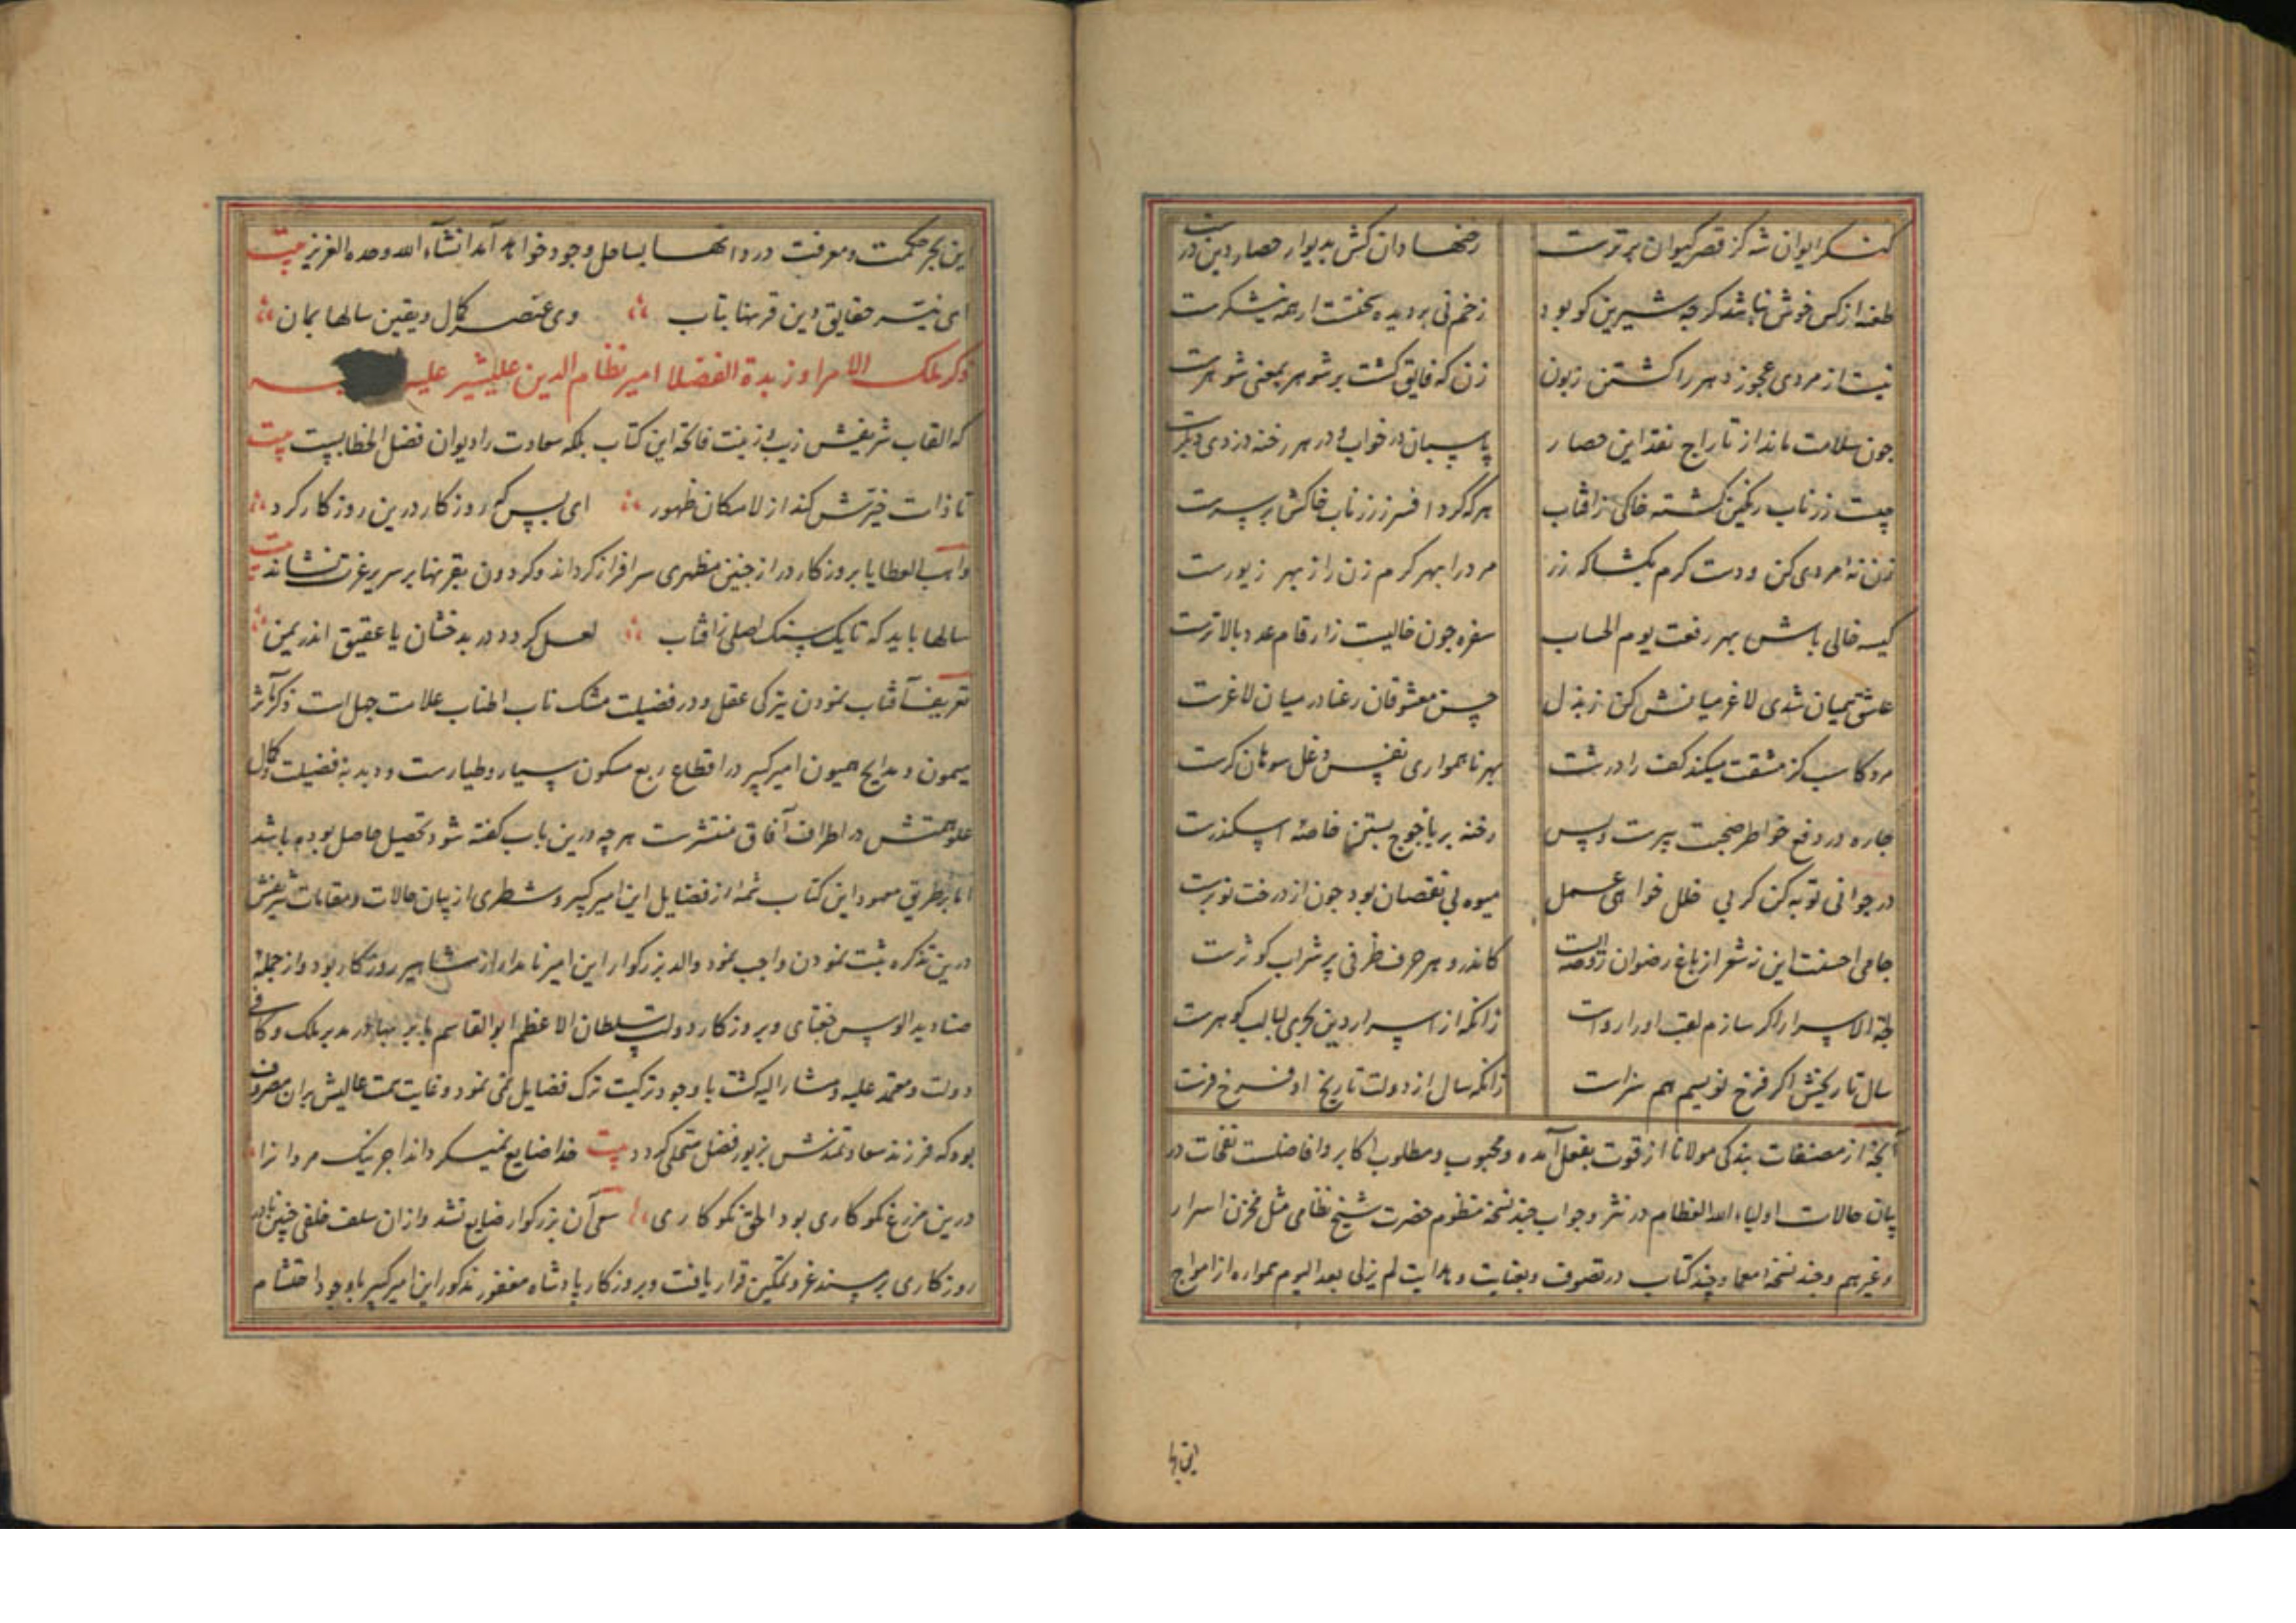 کنکر ایوان شه کز قصر کیوان برترست رخنها دان کش بدیوار حصار دین درست
طعنه از کس خوش نباشد کرچه شیرین کو بود زخم نی بر دیده سختست ار همه نیشکرست
نیست از مردی عجوز دهر را کشتن زبون زن که فایق کشت بر شوهر بمعنی شوهرست
چون سلامت ماند از تاراج نقد این حصار پاسبان در خواب و در هر رخنه دزدی دیکرست
چیست زر ناب رنکین کشته خاکی ز افتاب هر که کرد افسر ز زر ناب خاکش بر سرست
زن نه مردی کن و دست کرم بکشا که زر مرد را بهر کرم زن را ز بهر زیورست
کیسه خالی باش بهر رفعت یوم الحساب صفره چون خالیست ز ارقام عدد بالاترست
عشق همیان شدی لاغر میانش کن ز بذل حسن معشوقان رعنا در میان لاغرست
مرد کاسب کز مشقت میکند کف را درشت بهر ناهمواری نفس دغل سوهان کرست
چاره در دفع خواطر صحبت پیرست و بس رخنه بر یاجوج بستن خاصه اسکندرست
در جوانی توبه کن کر بی خلل خواهی عمل میوه بی نقصان بود چون از درخت نوبرست
جامی احسنت این نه شعر از باغ رضوان روضه ایست کاندرو هر حرف ظرفی پر شراب کوثرست
لجة الاسرار اکر سازم لقب او را رواست زانکه از اسرار دین بحری لبالب کوهرست
سال تاریخش اکر فرخ نویسم هم سزاست زانکه سال از دولت تاریخ او فرخ فرست
آنچه از مصنفات بندکی مولانا از قوت بفعل آمده و محبوب و مطلوب اکابر و افاضلست نفحات در
بیان حالات اولیاء الله العظام در نثر و جواب چند نسخه منظوم حضرت شیخ نظامی مثل مخزن اسرار
و غیرهم و چند نسخه معما و چند کتاب در تصوف و بعنایت و هدایت لم یزلی بعد الیوم همواره از امواج
این دریا
این بحر حکمت و معرفت درر دانها بساحل وجود خواهد آمد انشاء الله وحده العزیز بیت
ای نیر حقایق دین قرنها بتاب وی عنصر کمال و یقین سالها بمان
ذکر ملک الامرا و زبدة الفضلا امیر نظام الدین علیشیر علیه
که القاب شریفش زیب و زینت فاتحه این کتاب بلکه سعادت را دیوان فصل الخطابیست بیت
تا ذات خیرتش کند از لامکان ظهور ای بس که روزکار درین روزکار کرد
واهب العطایا بروزکار دراز چنین مظهری سرافراز کرداند و کردون بقرنها بر سریر عزت نشاند بیت
سالها باید که تا یک سنک اصلی ز افتاب لعل کردد در بدخشان یا عقیق اندر یمن
تعریف آفتاب نمودن تیرکی عقل و در فضیلت مشک ناب اطناب علامت جهل است ذکر مآثر
میمون و مدایح همیون امیر کبیر در اقطاع ربع مسکون سیار و طیارست و دبدبه فضیلت و کمال
علو همتش در اطراف آفاق منتشرست هر چه درین باب کفته شود تحصیل حاصل بوده باشد
اما بر طریق معهود این کتاب شمه از فضایل این امیر کبیر و شطری از بیان حالات و مقامات شریفش
درین تذکره ثبت نمودن واجب نمود والد بزرکوار این امیر نامدار از مشاهیر روزکار بود و از جمله
صنادید الوس جغتای و بروزکار دولت سلطان الاعظم ابوالقاسم بابر بهادر مدبر ملک و کافی
دولت و معتمد علیه و مشار الیه کشت با وجود ترکیت ترک فضایل نمی نمود و غایت همت عالیش بران مصروف
بود که فرزند سعادتمندش بزیور فضل متحلی کردد بیت خدا ضایع نمیکرداند اجر نیک مردانرا
درین مزرع نکوکاری بود الحق نکوکاری سعی آن بزرکوار ضایع نشد و ازان سلف خلفی چنین نامدار
روزکاری بر مسند عز و تمکین قرار یافت و بروزکار پادشاه مغفور مذکور این امیر کبیر باوجود احتشام